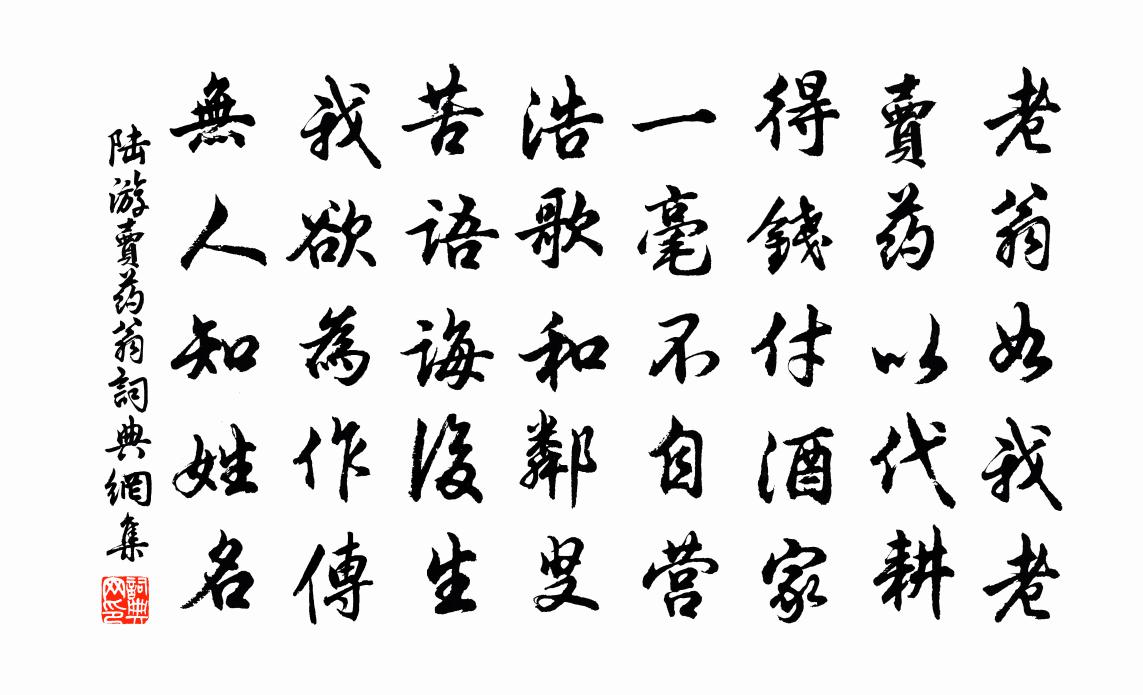 老翁如我老
賣药以代耕
得錢付酒家
一毫不自营
浩歌和鄰叟
苦語誨後生
我欲為作傳
無人知姓名
陆游賣药翁詞典網集
詞典网印